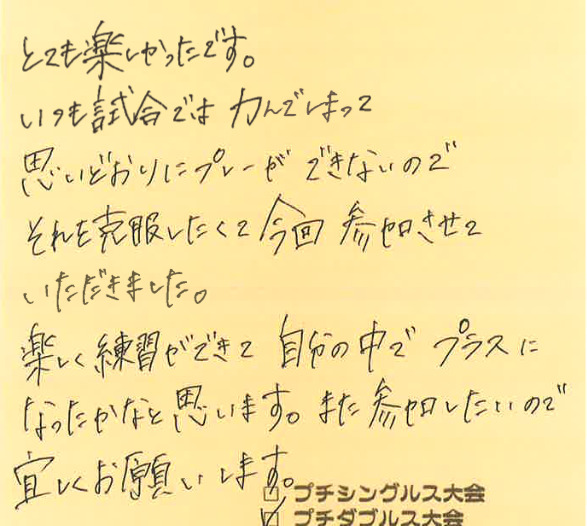 とても楽しかったです。
いつも試合では力んでしまって
思いどおりにプレーができないので
それを克服したくて今回参加させて
いただきました。
楽しく練習ができて自分の中でプラスに
なったかなと思います。また参加したいので
宜しくお願いします。
□ プチシングルス大会
☑ プチダブルス大会